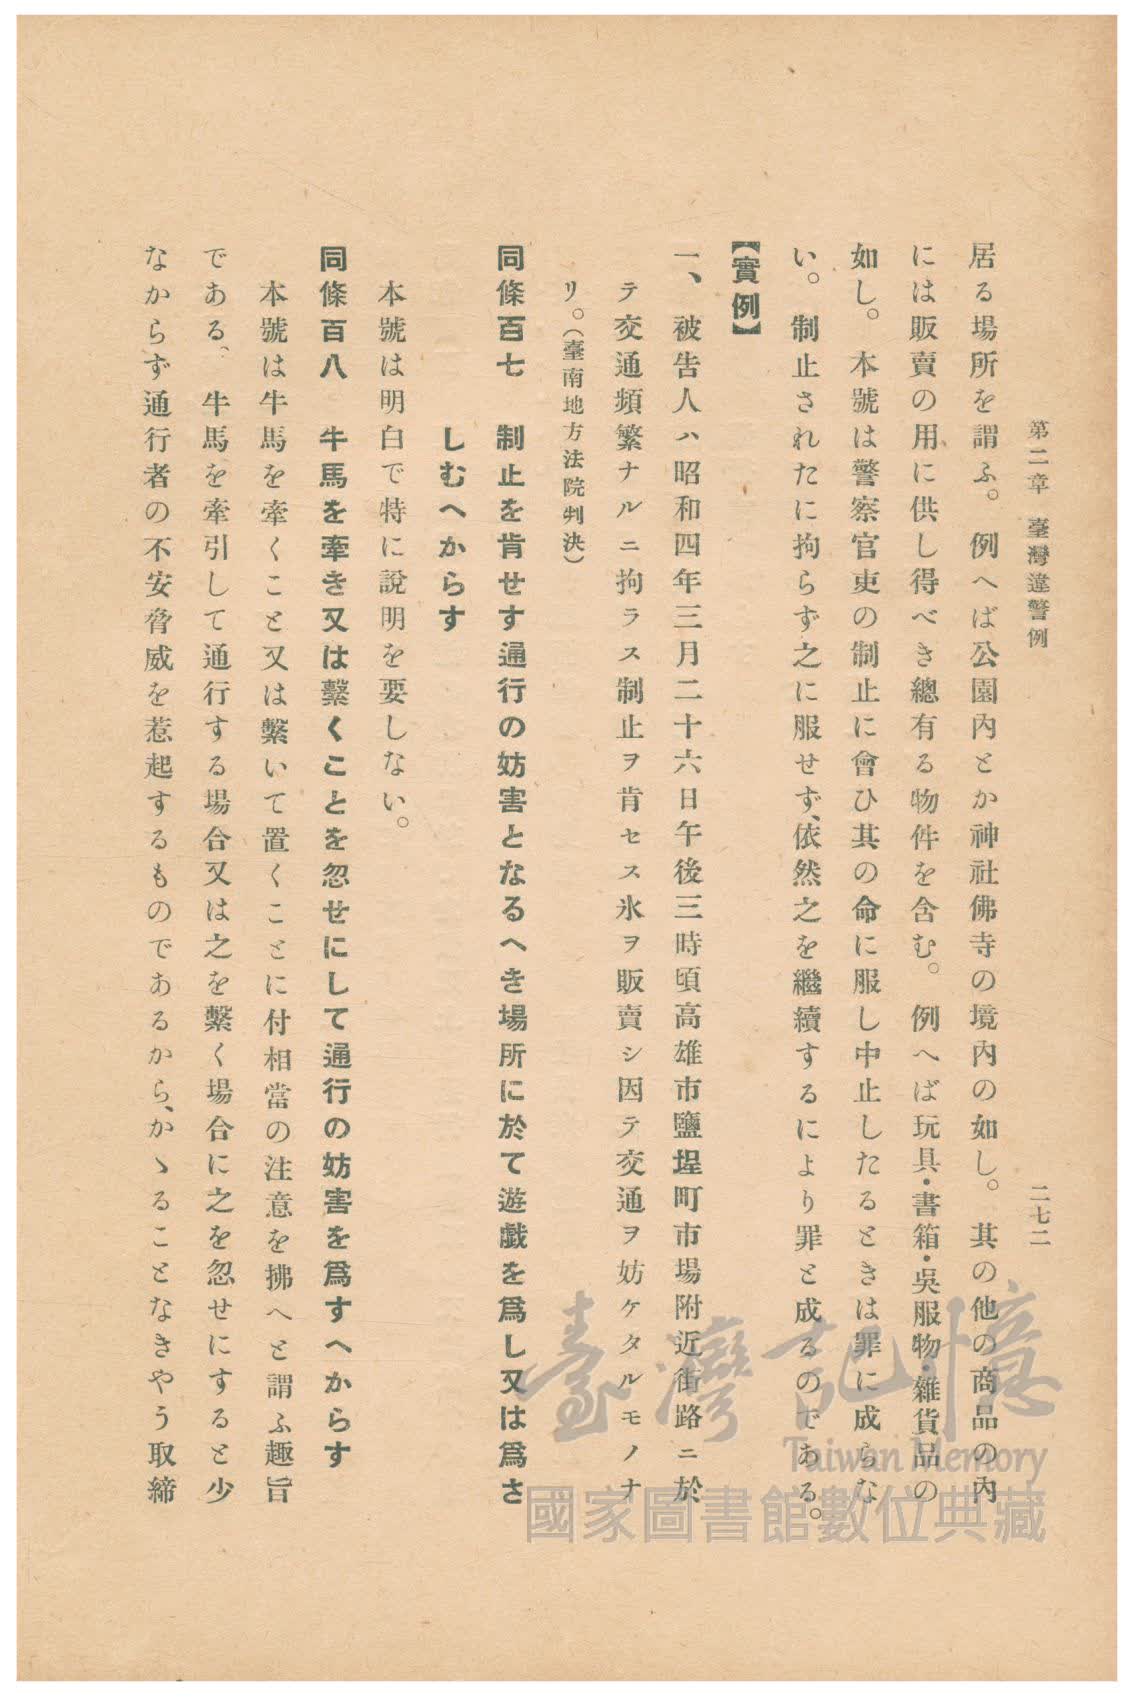 第二章　臺灣違警例　二七二
居る場所を謂ふ。例へば公園內とか神社佛寺の境內の如し。其の他の商品の內
には販賣の用に供し得べき總有る物件を含む。例へば玩具・書箱・吳服物・雜貨品の
如し。本號は警察官吏の制止に會ひ其の命に服し中止したるときは罪に成らな
い。制止されたに拘らず之に服せず、依然之を繼續するにより罪と成るのである。
【實例】
一、被告人ハ昭和四年三月二十六日午後三時頃高雄市鹽埕町市場附近街路ニ於
テ交通頻繁ナルニ拘ラス制止ヲ肯セス氷ヲ販賣シ因テ交通ヲ妨ケタルモノナ
リ。（臺南地方法院判決）
同條百七　制止を肯せす通行の妨害となるへき場所に於て遊戲を爲し又は爲さ
しむへからす
本號は明白で特に說明を要しない。
同條百八　牛馬を牽き又は繫くことを忽せにして通行の妨害を爲すへからす
本號は牛馬を牽くこと又は繫いて置くことに付相當の注意を拂へと謂ふ趣旨
である、牛馬を牽引して通行する場合又は之を繫く場合に之を忽せにすると少
なからず通行者の不安脅威を惹起するものであるから、かゝることなきやう取締
臺灣記憶
Taiwan Memory
國家圖書館數位典藏